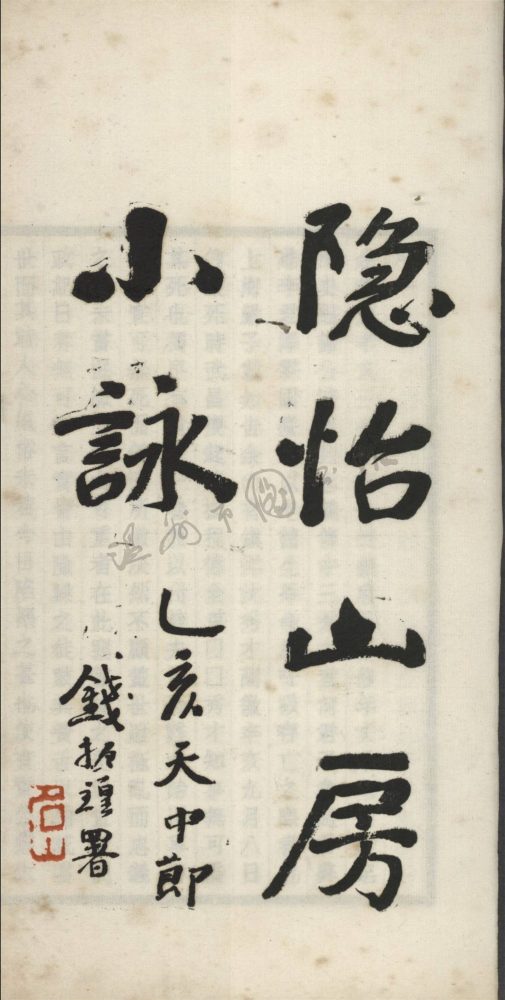 隐怡山房
小詠
乙亥天中節
錢振鍠署
名山